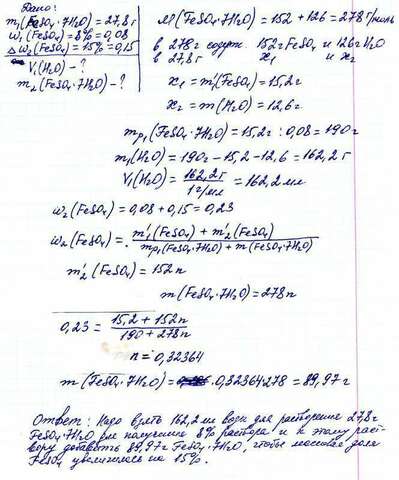 Дано:
m₁(FeSO₄·7H₂O)=27,8г
ω₁(FeSO₄)=8%=0,08
Δω₂(FeSO₄)=15%=0,15
V₁(H₂O)-?
m₂(FeSO₄·7H₂O)-?
M(FeSO₄·7H₂O)=152+126=278г/моль
в 278г содерж. 152г FeSO₄ и 126г H₂O
в 27,8г x₁ и x₂
x₁=m'₁(FeSO₄)=15,2г
x₂=m(H₂O)=12,6г
mр₁(FeSO₄·7H₂O)=15,2г:0,08=190г
m₁(H₂O)=190г-15,2-12,6=162,2г
V₁(H₂O)=162,2г/1г/мл=162,2мл
ω₂(FeSO₄)=0,08+0,15=0,23
ω₂(FeSO₄)=m'₁(FeSO₄)+m'₂(FeSO₄)/mр₁(FeSO₄·7H₂O)+m(FeSO₄·7H₂O)
m'₂(FeSO₄)=152n
m(FeSO₄·7H₂O)=278n
0,23=15,2+152n/190+278n
n=0,32364
m(FeSO₄·7H₂O)=0,32364·278=89,97г
Ответ: Надо взять 162,2мл воды для растворения 27,8г
FeSO₄·7H₂O для получения 8% раствора и к этому раст-
вору добавить 89,97г FeSO₄·7H₂O, чтобы массовая доля
FeSO₄ увеличилась на 15%.